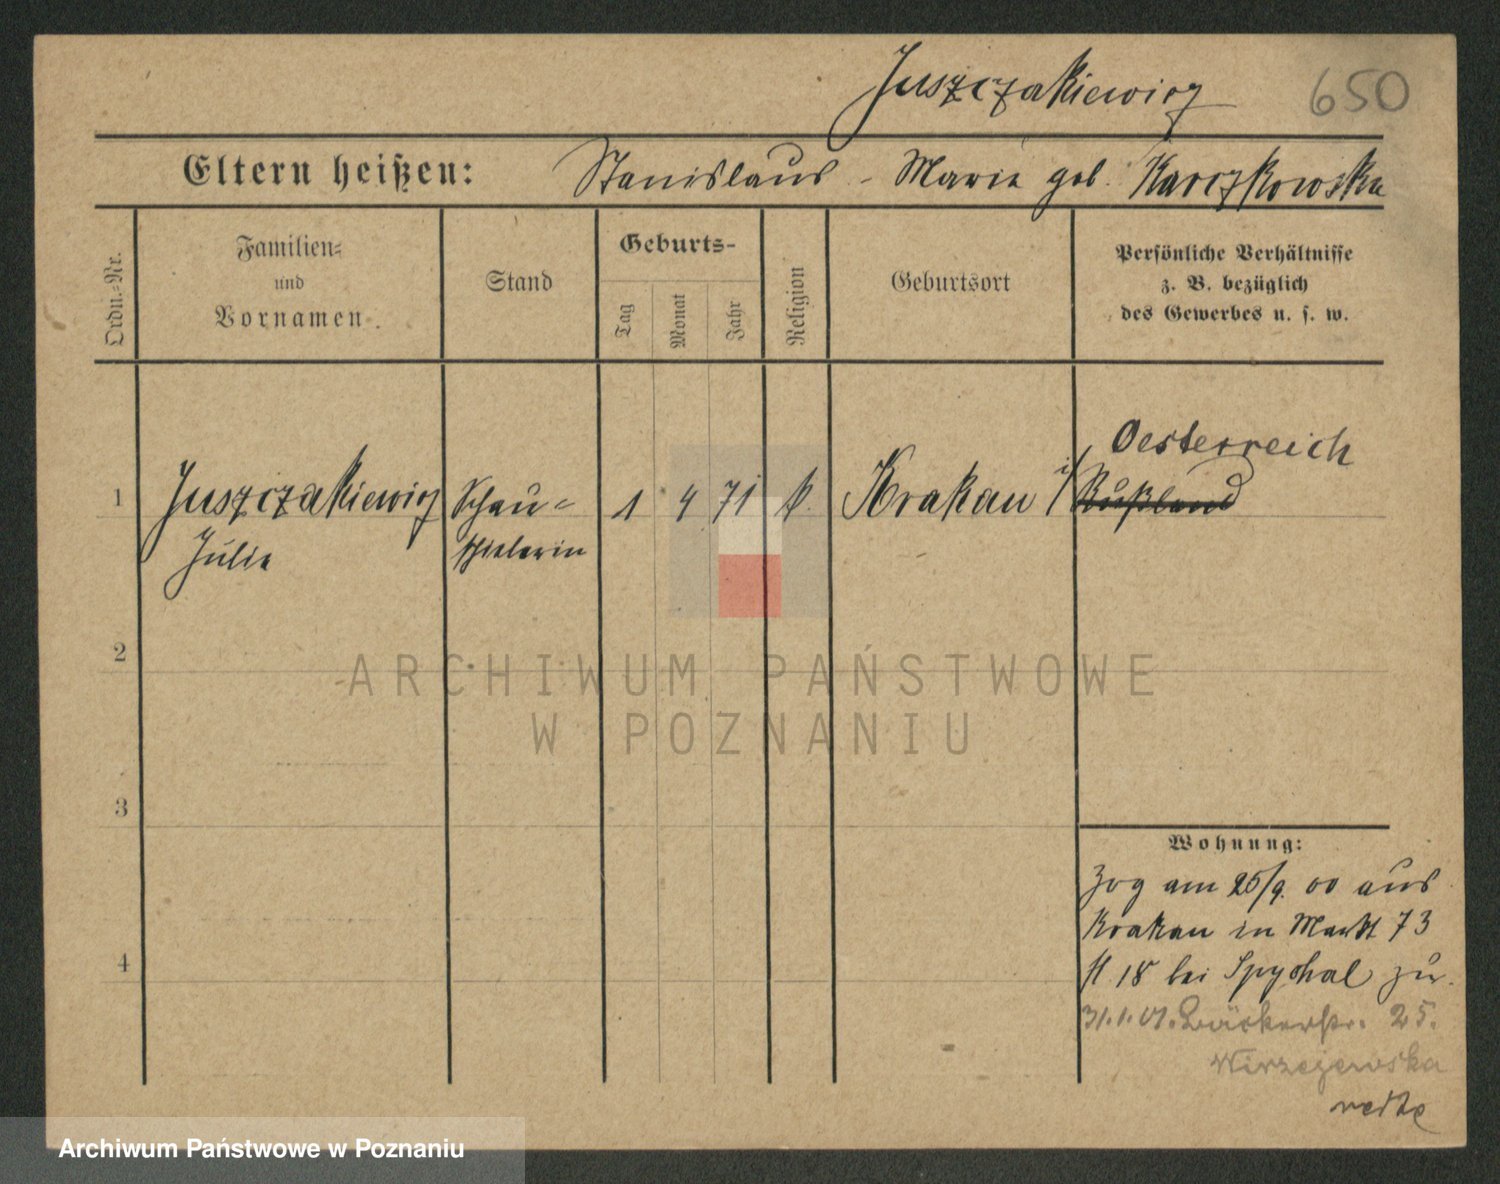 Juszczakiewicz 650
Eltern heißen: Stanislaus - Marie geb. Karczkowska
Ordn.-Nr.
Familien-
und
Vornamen.
Stand
Geburts-
Tag
Monat
Jahr
Religion
Geburtsort
Persönliche Verhältnisse
z. B. bezüglich
des Gewerbes u. s. w.
Oesterreich
1 Juszczakiewicz Schau- 1 4 71 k. Krakau i/ Rußland
Julie spielerin
2
3
4
Wohnung:
Zog am 25/9. 00 aus
Krakau in Markt 73
II 18 bei Spychal zu.
31.1.01. Bäckerstr. 25.
Wirzejewska
ARCHIWUM PAŃSTWOWE
W POZNANIU
Archiwum Państwowe w Poznaniu